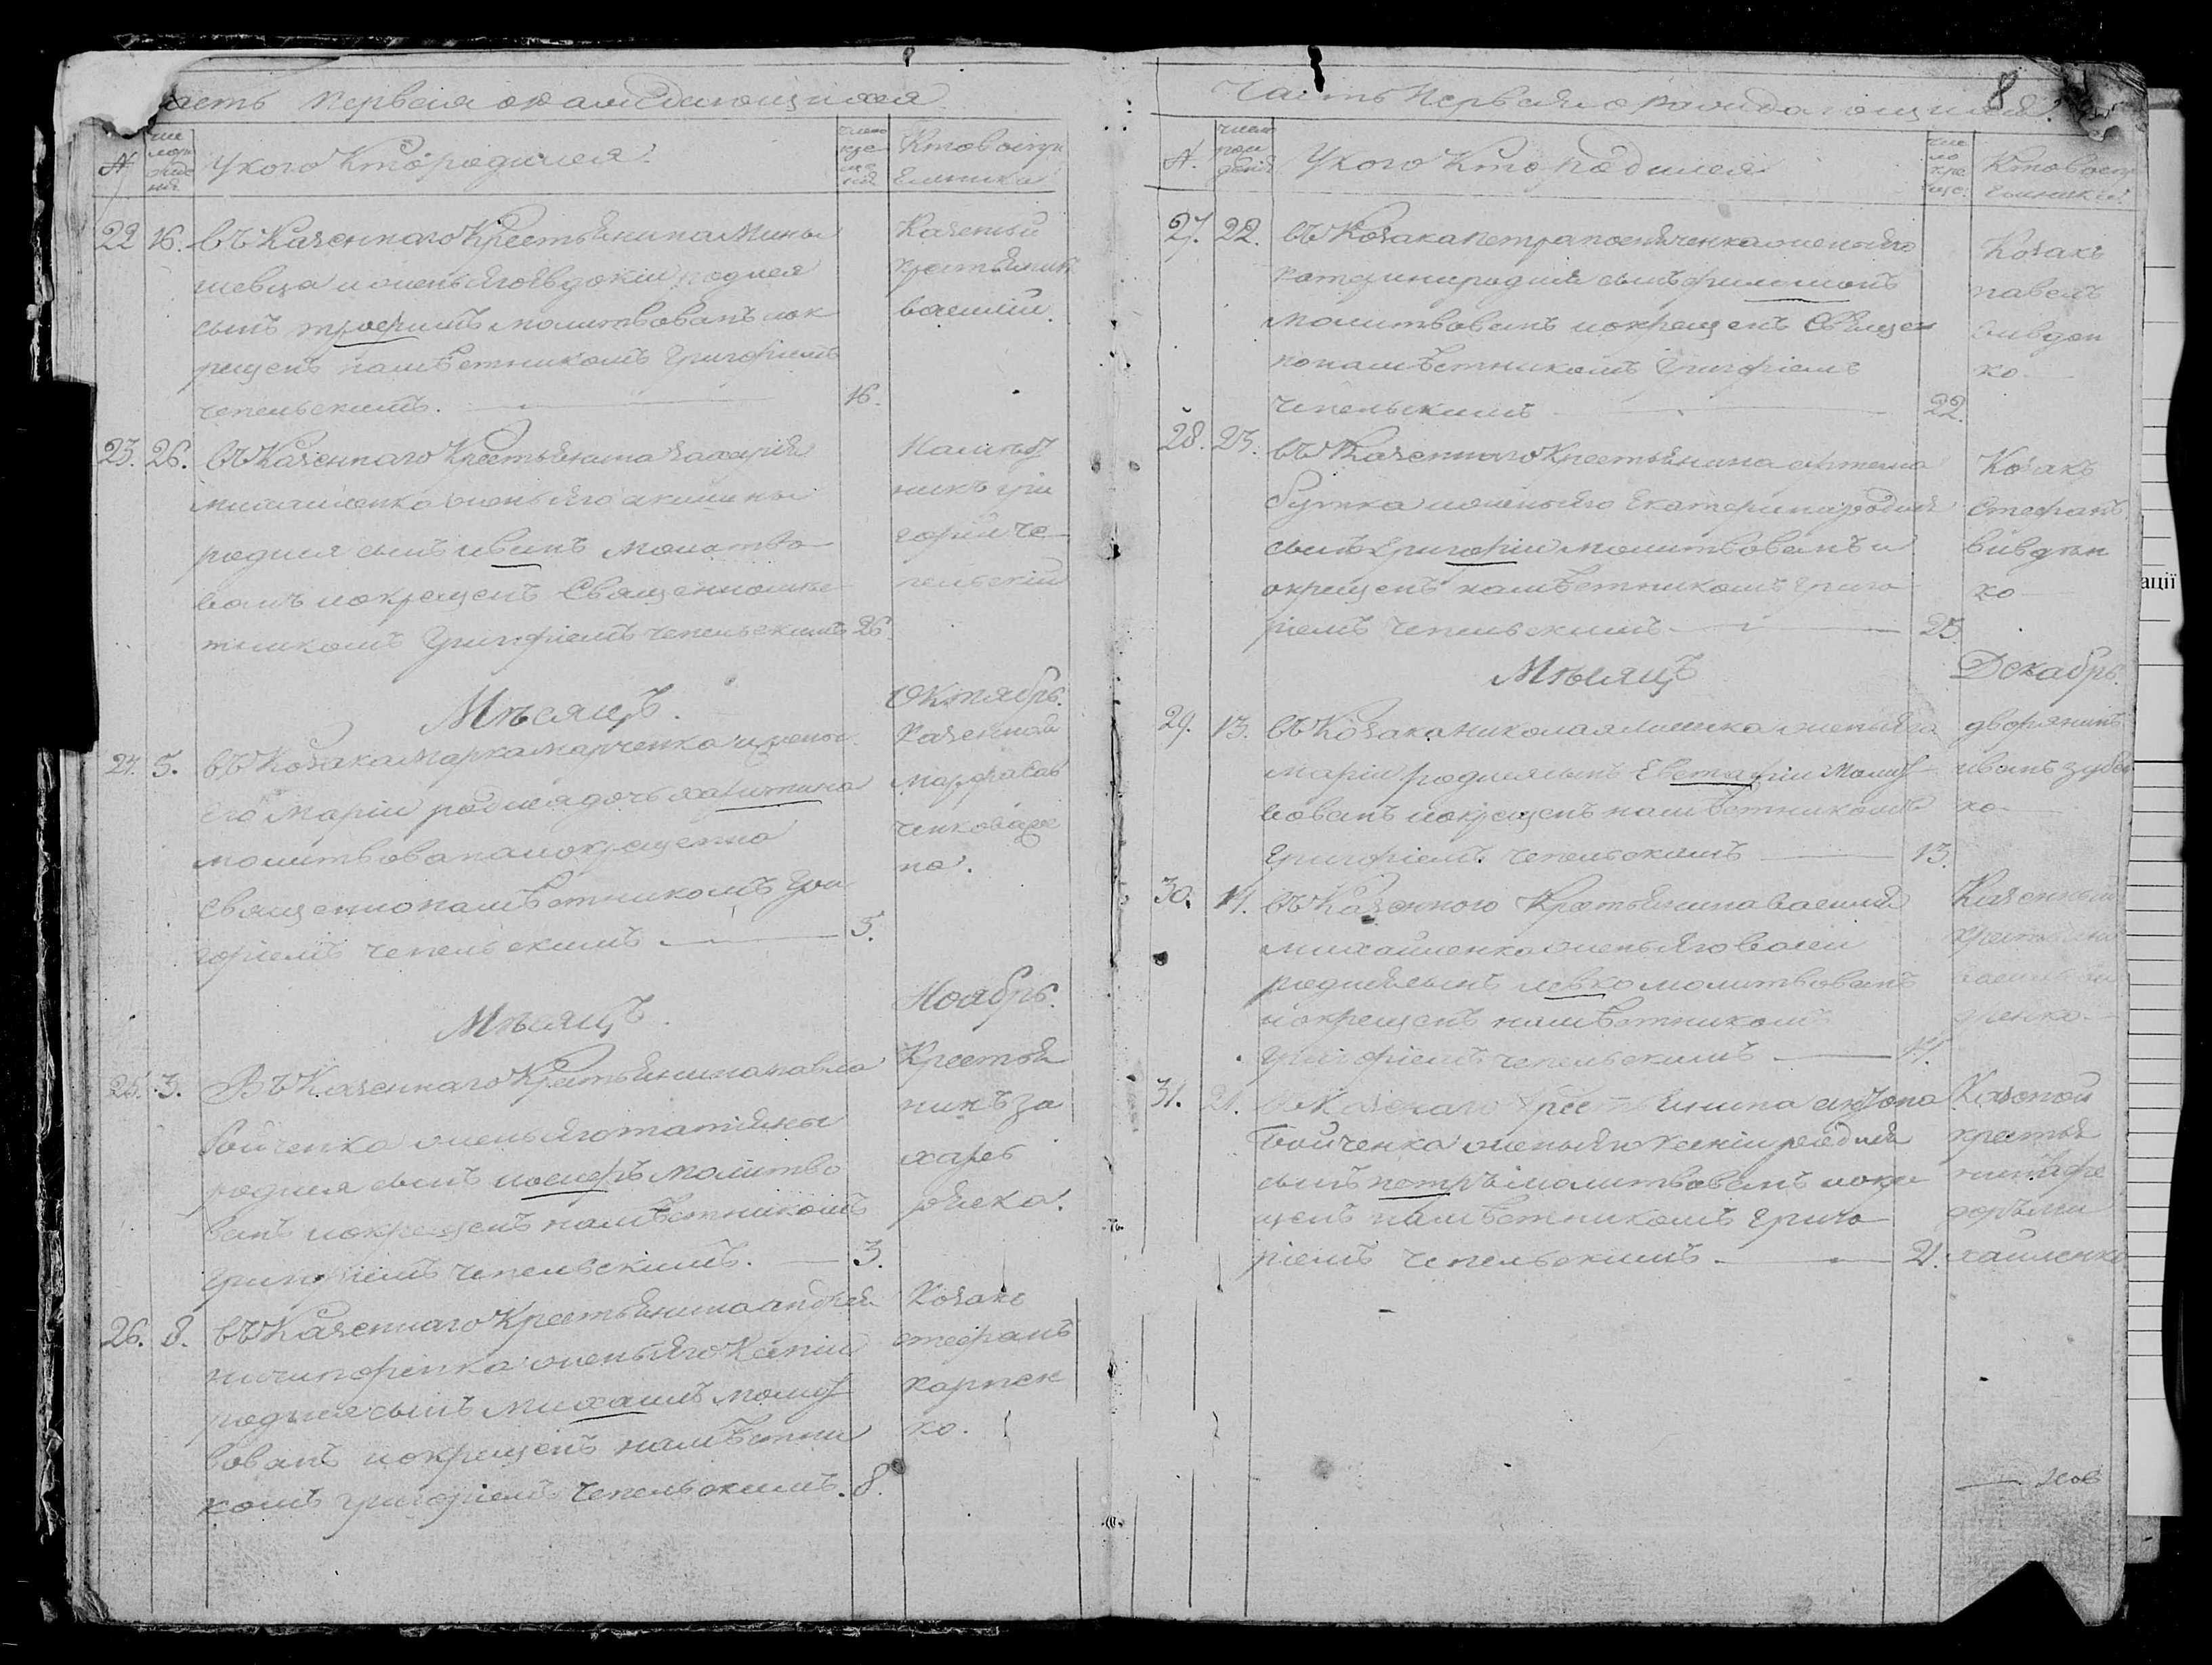 асть Первая о раждающихся
№
число рождения
У кого Кто родился.
число крещения
Кто воспріемника
22 16. въ Казеннаго Крестьянина Мины
шевца и жены Яго Явдокіи родися
сынъ трофимъ молитвованъ иок
рещенъ намѣстникомъ Григоріемъ
чепельскимъ. 16.
Казеный
крестьянинъ
василій.
23. 26. въ Казеннаго Крестьянина захарія
михайленка жены Яго акилины
родися сынъ иванъ молитво
ванъ и окрещенъ Священнонаме
тникомъ Григоріемъ чепельскимъ 26.
Намѣст
никъ гри
горій че
пельскій
Мѣсяцъ. Октябрь.
24. 5. въ Козака Марка Марченка и жены
его Маріи родися дочь харитина
молитвована и окрещенна
Священнонамѣстникомъ Гри
горіемъ чепельскимъ 5.
Казенная
Марфа
ченкова
на.
Мѣсяцъ. Ноябрь.
25. 3. Въ Казеннаго Крестьянина павла
бойченка жены Яго татіяны
родися сынъ иосифъ молитво
ванъ и окрещенъ намѣстникомъ
Григоріемъ чепельскимъ. 3.
Крестья
нинъ за
харъ
26. 8. въ Казеннаго Крестьянина андрея
ничипоренка жены Яго Ксеніи
родися сынъ михаилъ молит
вованъ и окрещенъ намѣстни
комъ григоріемъ чепельскимъ. 8.
Козакъ
стефанъ
карпен
ко.
Часть Первая о раждающихся. 8
№.
число рождения
У кого Кто родился
число креще.
Кто воспріемникъ
27. 22. въ Козака петра жены Яго
катерини родися сынъ филимонъ
молитвованъ и окрещенъ Священ
нонамѣстникомъ Григоріемъ
чепельскимъ 22.
Козакъ
павелъ
вивден
ко
28. 23. въ Казеннаго Крестьянина артема
бутка и жены Яго Екатерина родися
сынъ григорій молитвованъ и
окрещенъ намѣстникомъ Григо
ріемъ чепельскимъ 23.
Козакъ
Стефанъ
вивден
ко
Мѣсяцъ Декабрь.
29. 13. въ Козака николая жены Яго
маріи родися сынъ Евстафій молит
вованъ и окрещенъ намѣстникомъ
Григоріемъ чепельскимъ 13.
дворянинъ
иванъ зубен
ко
30. 14. въ Казенного Крестьянина василія
михайленка жены Яго
родися сынъ левко молитвованъ
и окрещенъ намѣстникомъ
григоріемъ чепельскимъ 14.
Казенный
крестьянин
ренко
31. 21. въ Казенаго Крестьянина антона
бойченка жены Яго Ксеніи родися
сынъ петръ молитвованъ и окре
щенъ намѣстникомъ Григо
ріемъ чепельскимъ 21.
Казеной
крестья
нинъ фе
доръ ми
хайленко
ації